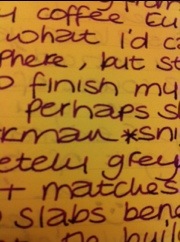 coffee Eu
what I'd ca
phere, but st
finish my
perhaps s
rman *sni
etely grey
+ matches
slabs bene